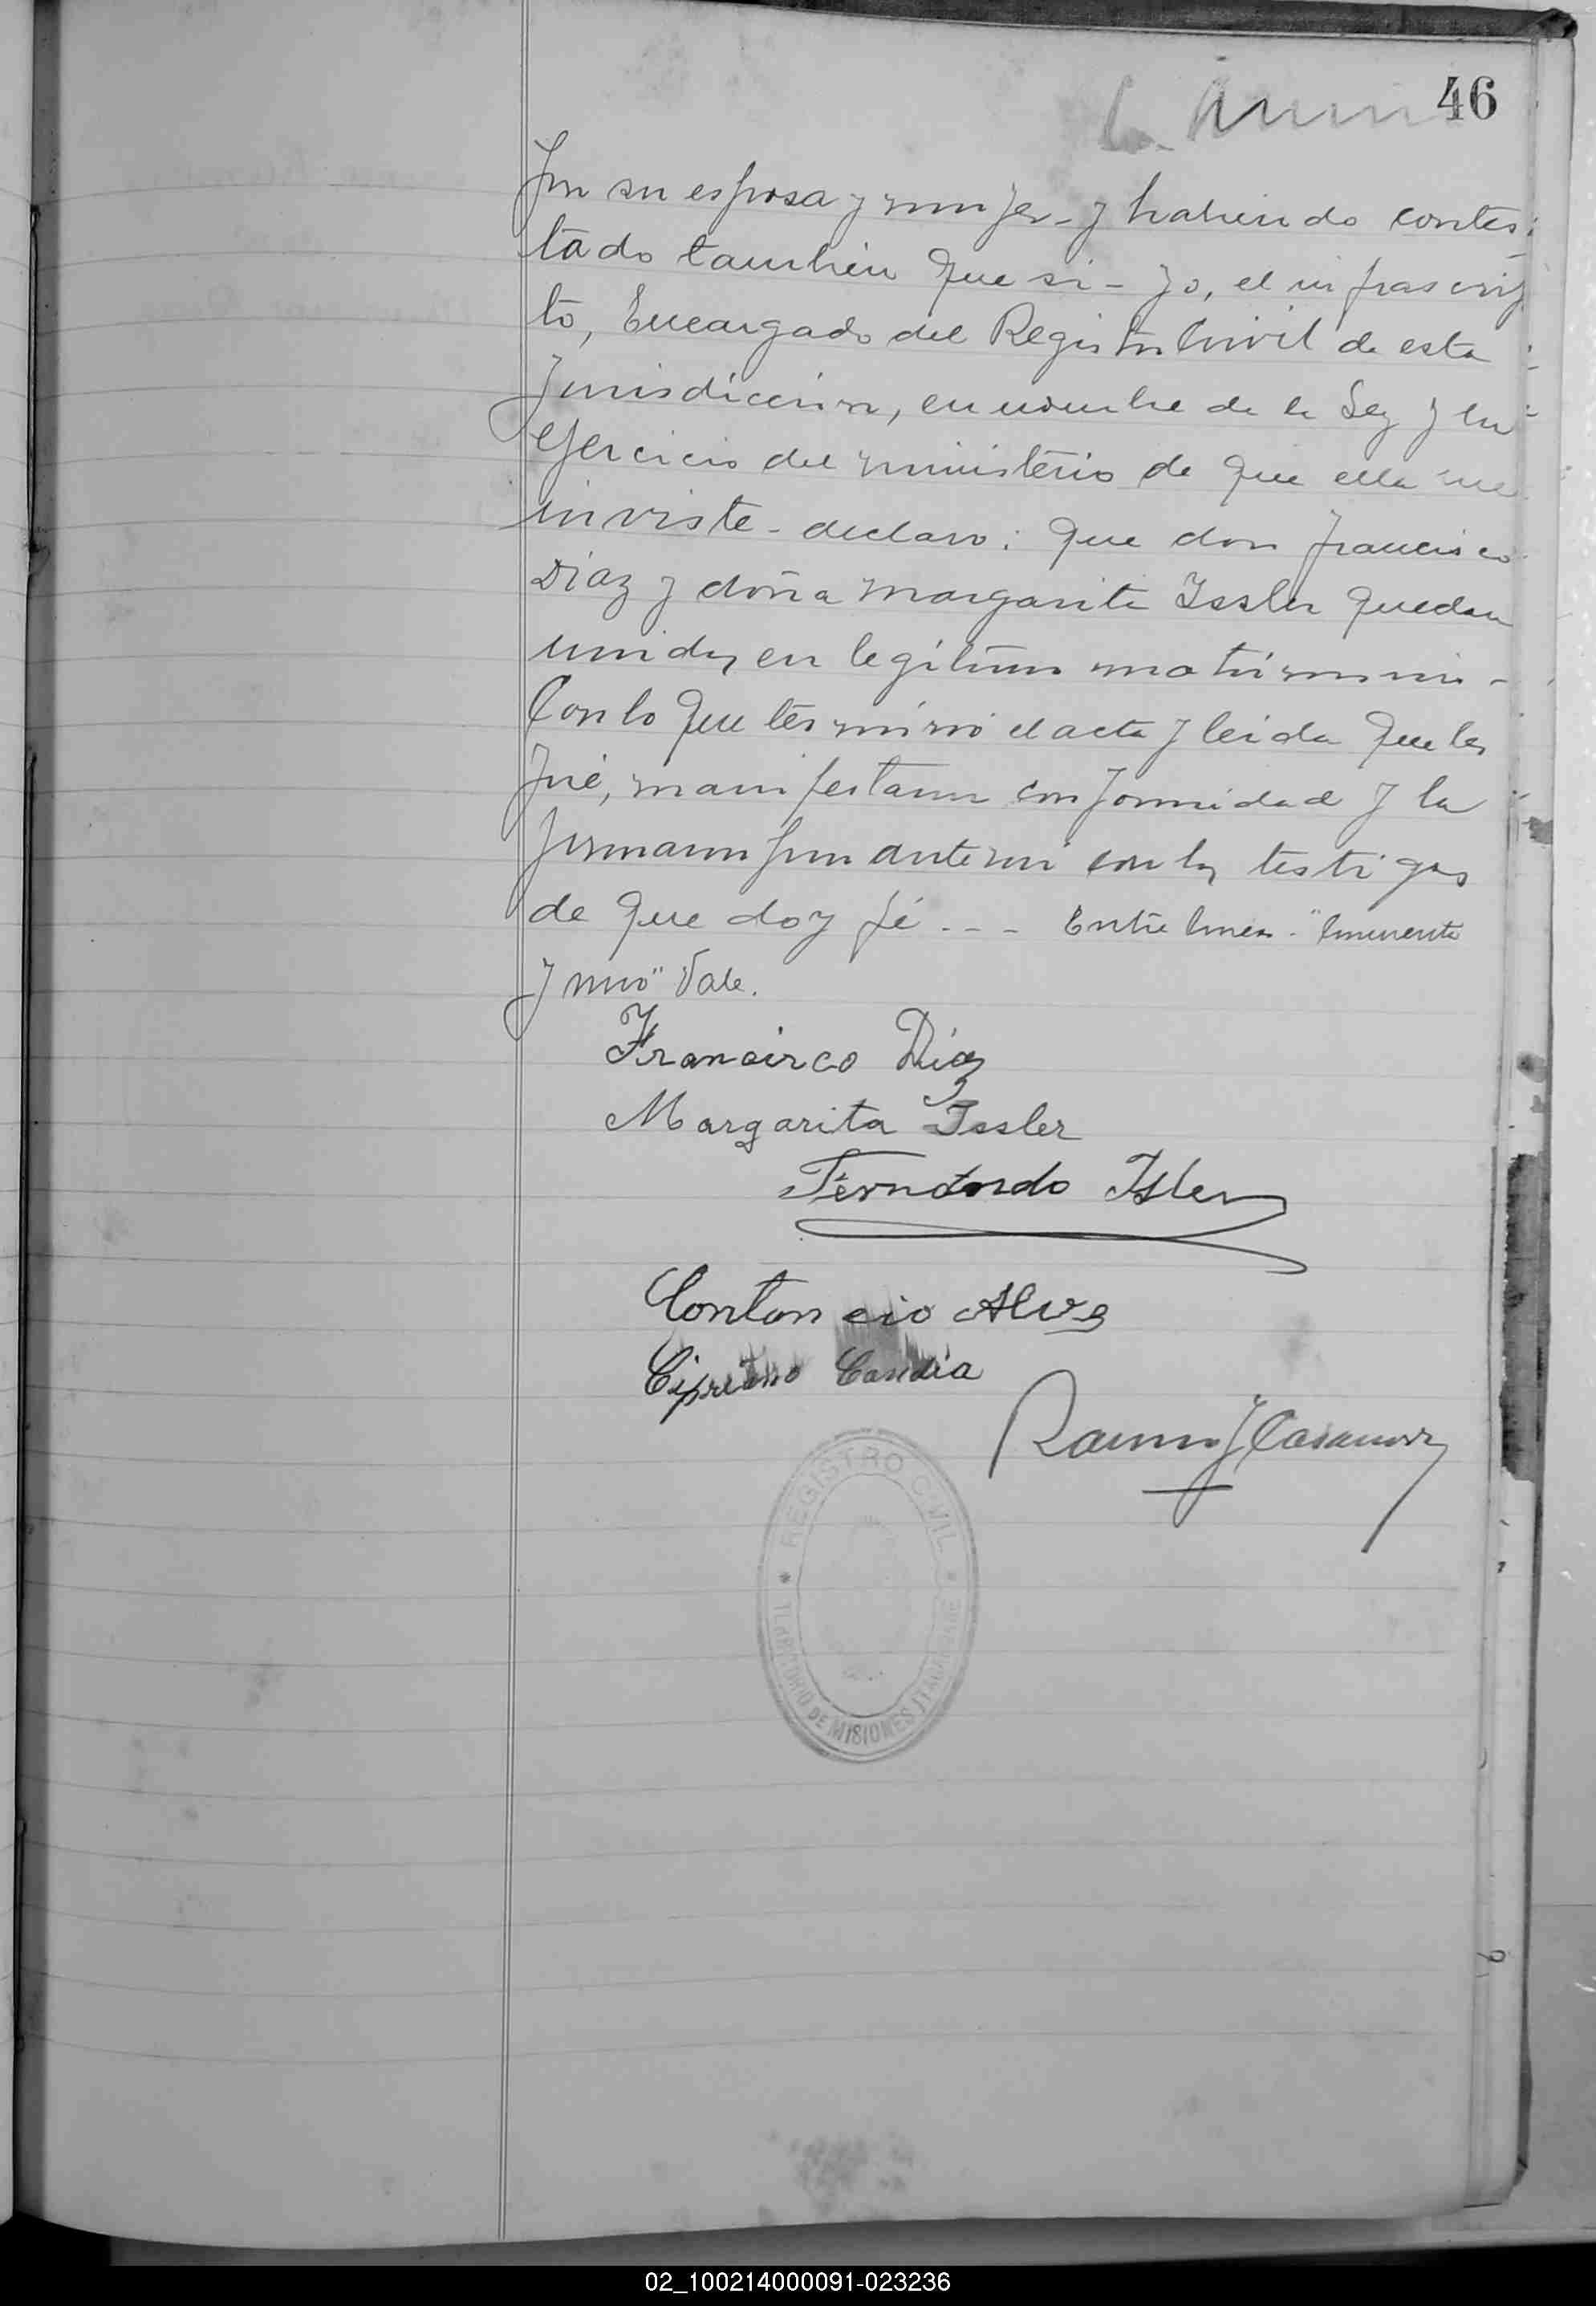 46
por su esposa y mujer - y habiendo contes-
tado tambien que si - yo, el infrascrip
to, Encargado del Registro Civil de esta
Jurisdiccion, en nombre de la Ley y en
ejercicio del ministerio de que ella me
inviste - declaro: que don Francisco
Díaz y doña Margarita Issler quedan
unidos en legítimo matrimonio -
Con lo que terminó el acta y leida que les
fué, manifestaron conformidad y la
firmaron por ante mi con los testigos
de que doy fé - - - Entre lineas - "
y uno" Vale.
Francisco Díaz
Margarita Issler
Fernando Isler
Contancio Alves
Cipriano Candia
Ramon J Casanova
REGISTRO CIVIL
TERRITORIO DE MISIONES
02_100214000091-023236